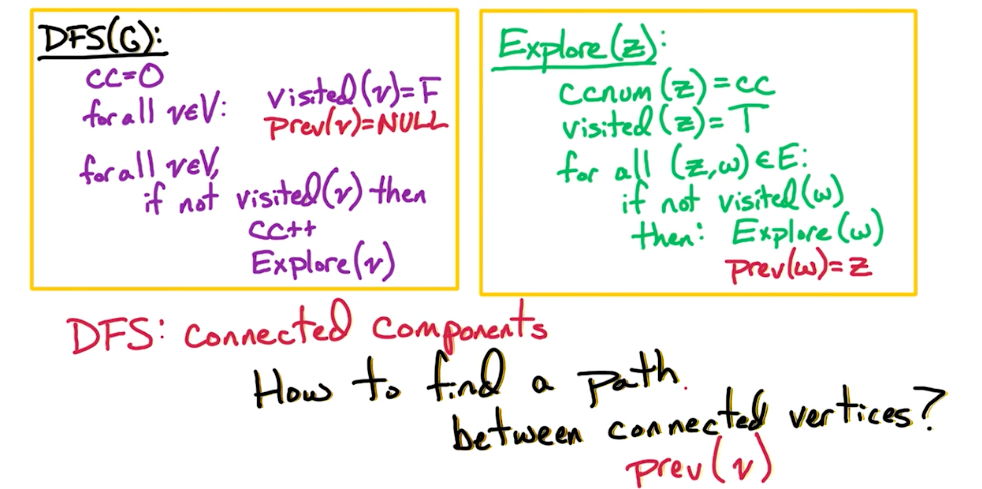 DFS(G):
cc=0
for all v∈V: visited(v)=F
prev(v)=NULL
for all v∈V,
if not visited(v) then
cc++
Explore(v)
Explore(z):
ccnum(z)=cc
visited(z)=T
for all (z,w)∈E:
if not visited(w)
then: Explore(w)
prev(w)=z
DFS: connected components
How to find a path
between connected vertices?
prev(v)